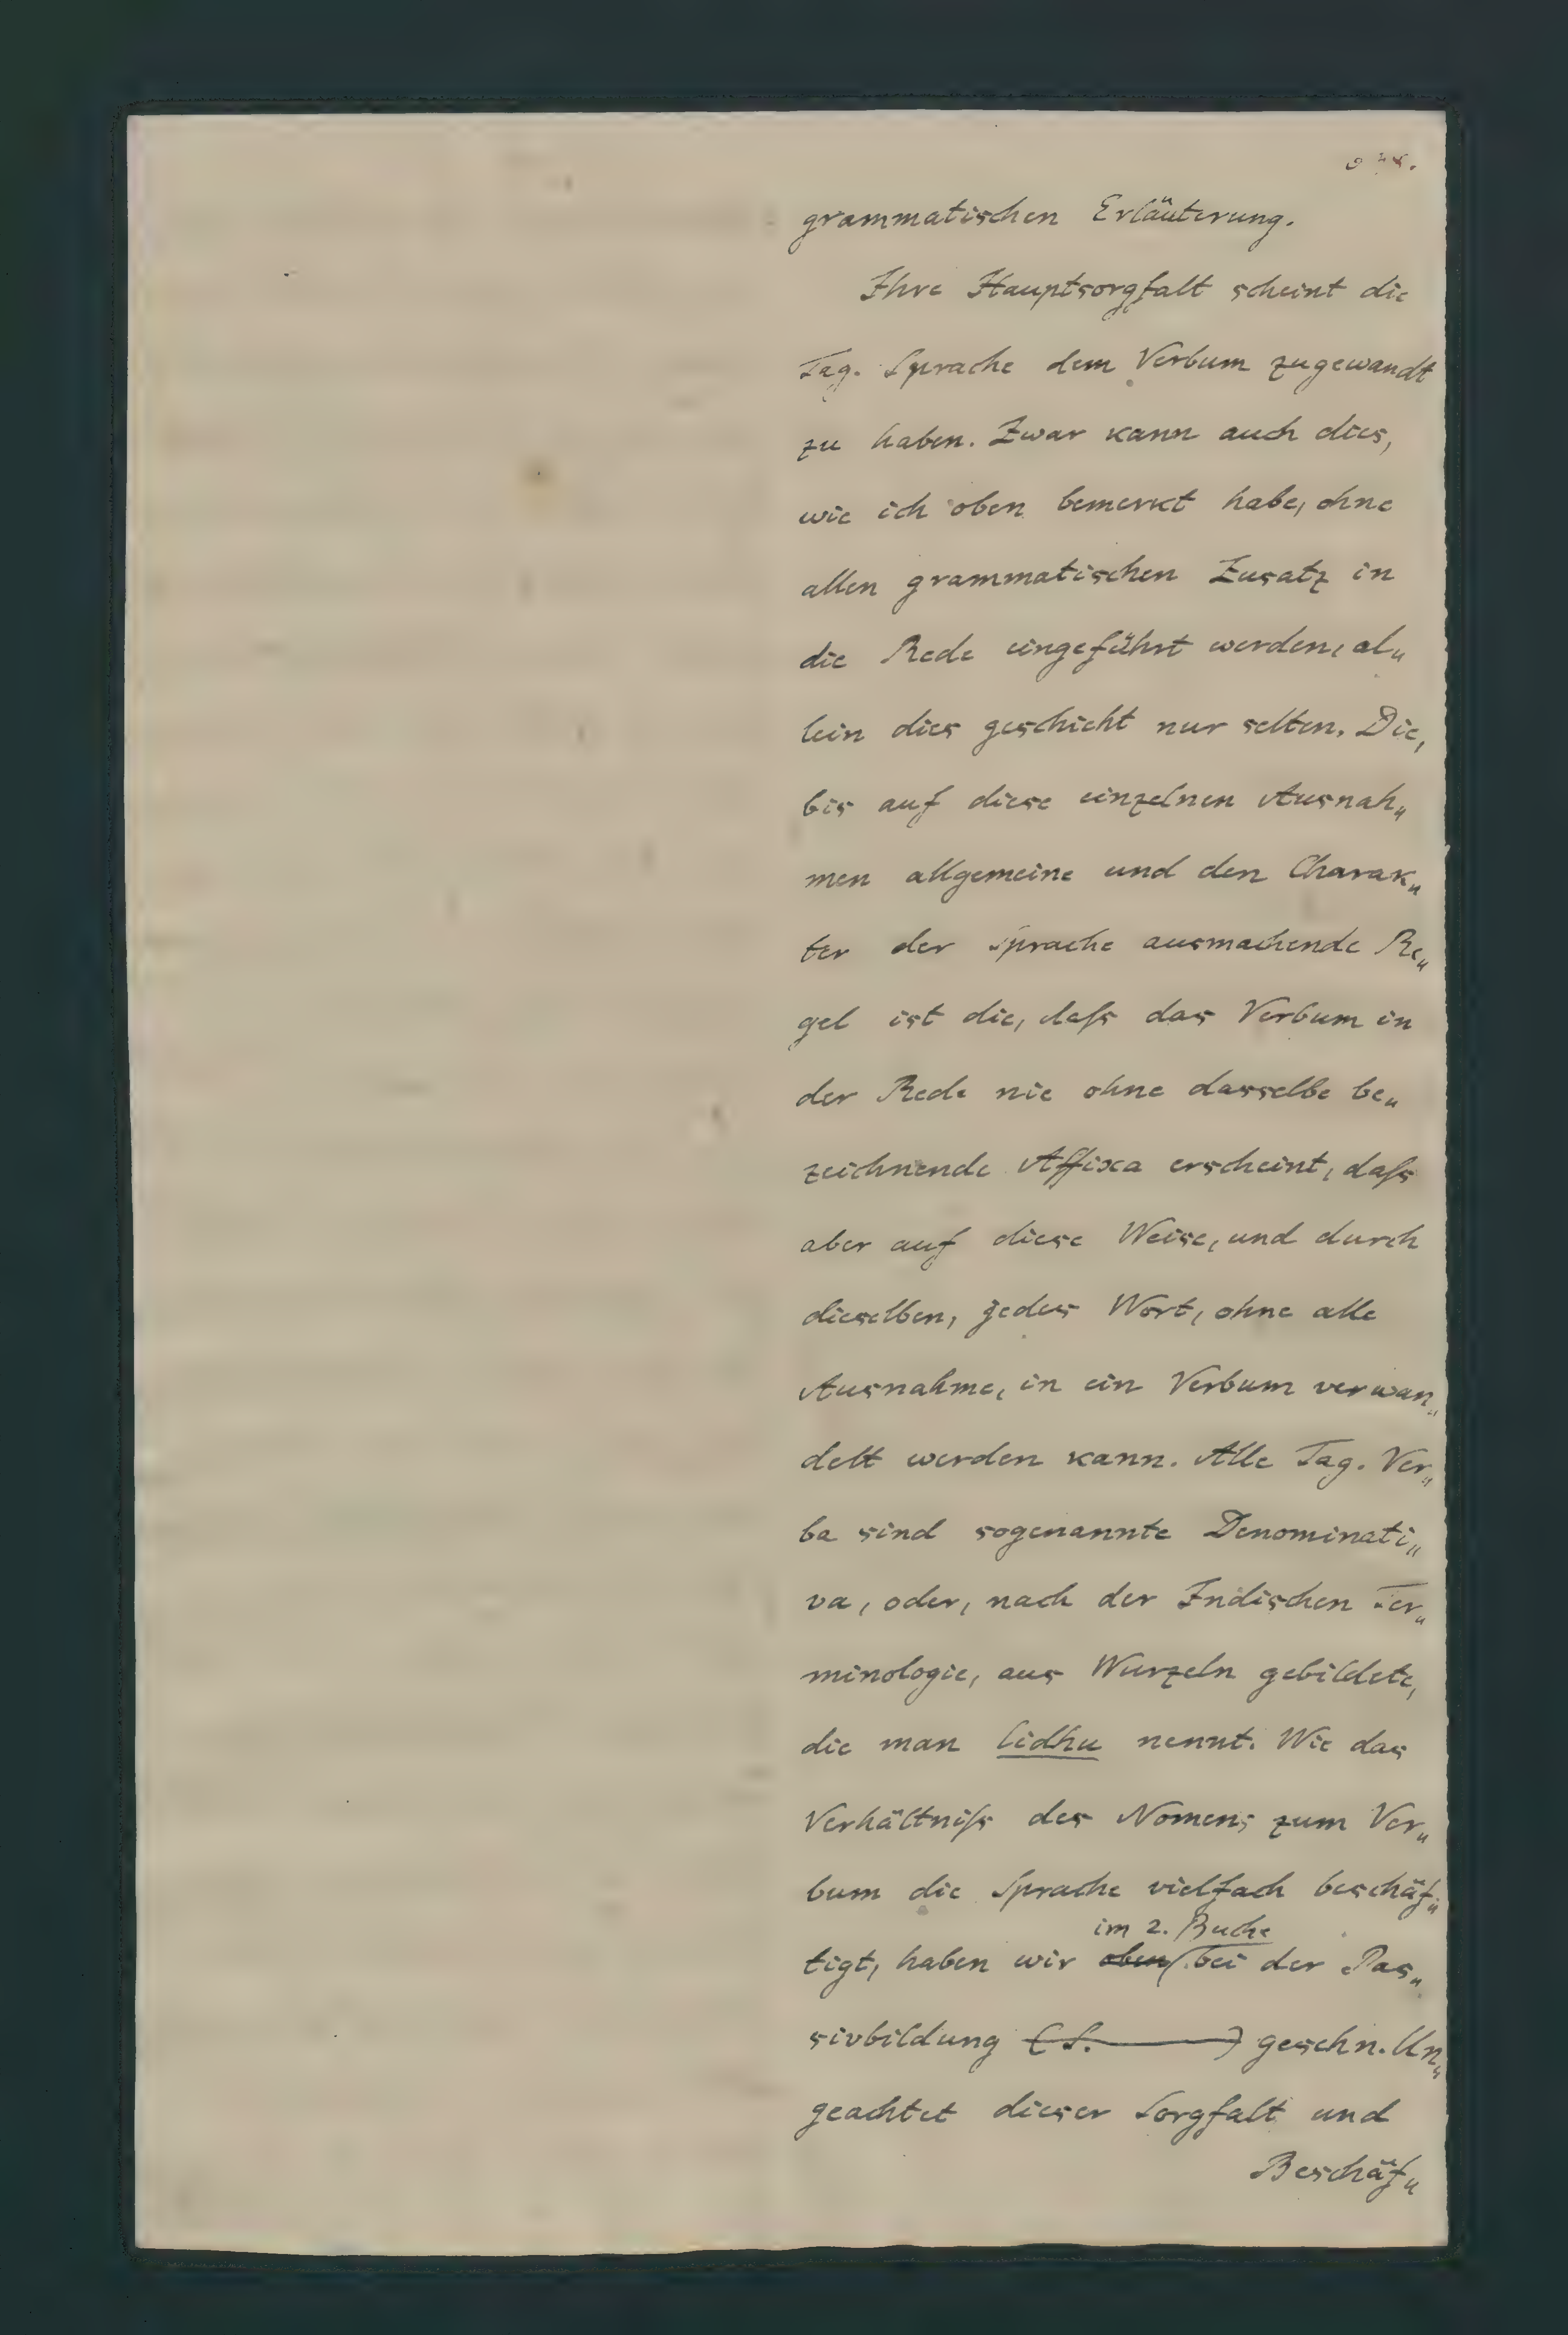 grammatischen Erläuterung.
Ihre Hauptsorgfalt scheint die
Tag. Sprache dem Verbum zugewandt
zu haben. Zwar kann auch dies,
wie ich oben bemerkt habe, ohne
allen grammatischen Zusatz in
die Rede eingeführt werden, al„
lein dies geschieht nur selten. Die,
bis auf diese einzelnen Ausnah„
men allgemeine und den Charak„
ter der Sprache ausmachende Re„
gel ist die, daſs das Verbum in
der Rede nie ohne dasselbe be„
zeichnende Affixa erscheint, daſs
aber auf diese Weise, und durch
dieselben, jedes Wort, ohne alle
Ausnahme, in ein Verbum verwan„
delt werden kann. Alle Tag. Ver„
ba sind sogenannte Denominati„
va, oder, nach der Indischen Ter„
minologie, aus Wurzeln gebildete,
die man lidhu nennt. Wie das
Verhältniſs des Nomens zum Ver„
bum die Sprache vielfach beschäf„
im 2. Buche
tigt, haben wir oben bei der Pas„
sivbildung (S. ) gesehn. Un„
geachtet dieser Sorgfalt und
Beschäf„